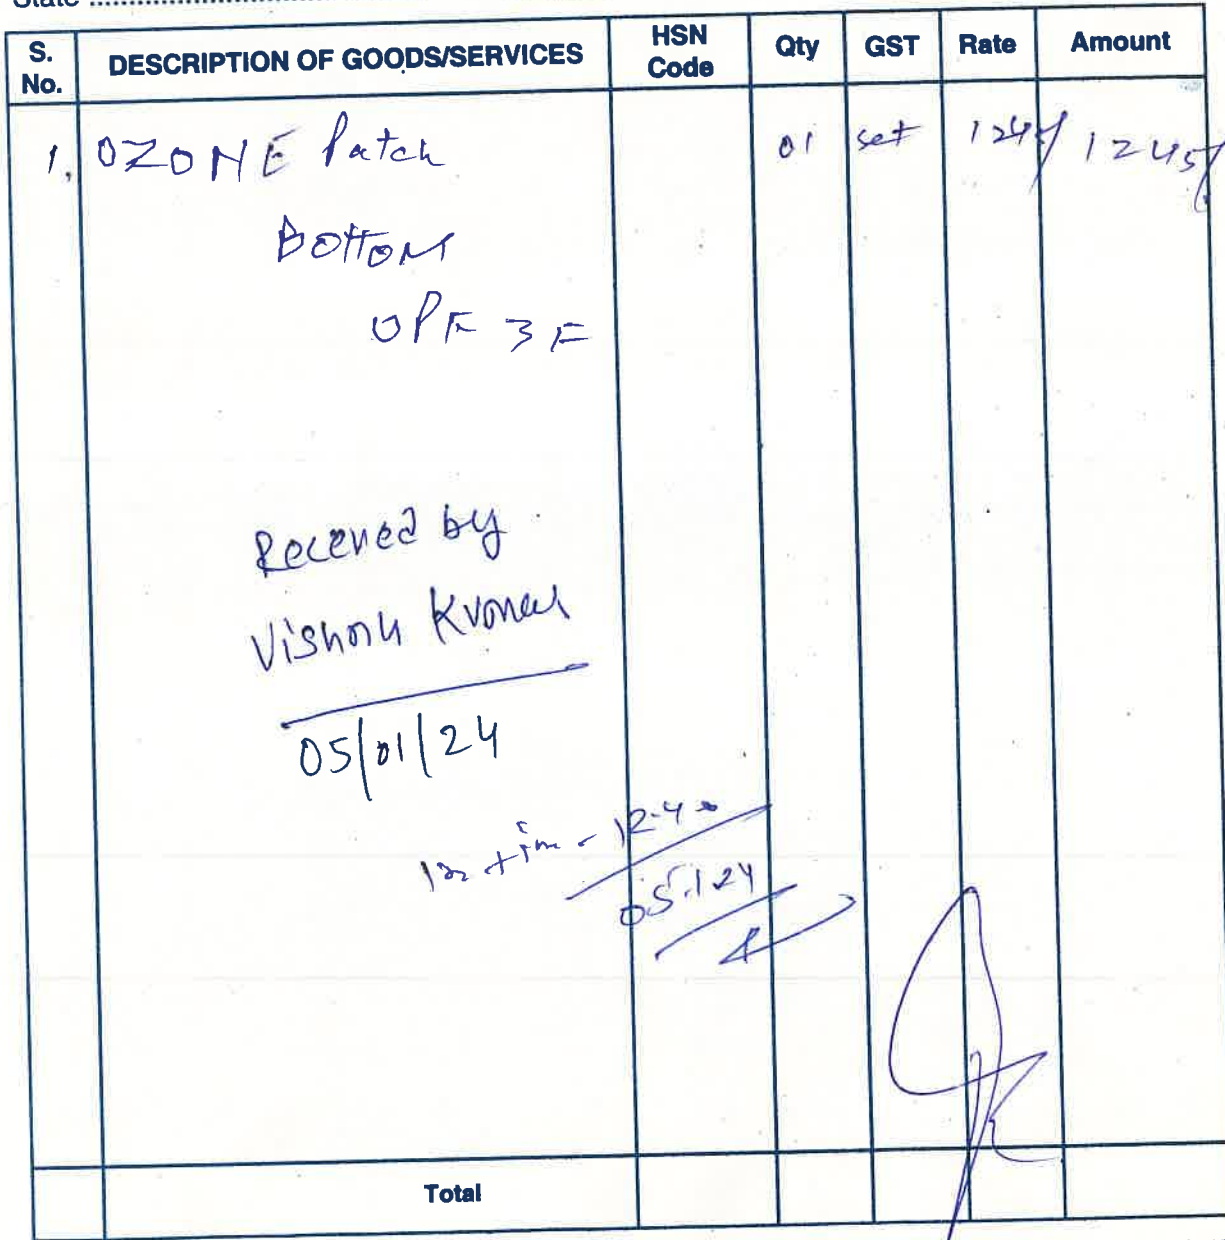 State ..........................
S. No. DESCRIPTION OF GOODS/SERVICES HSN Code Qty GST Rate Amount
1. OZONE Patch 01 set 1245/ 1245/
Bottom
OPF 3F
Received by
Vishnu Kumar
05/01/24
In time - 12-40
05.1.24
Total